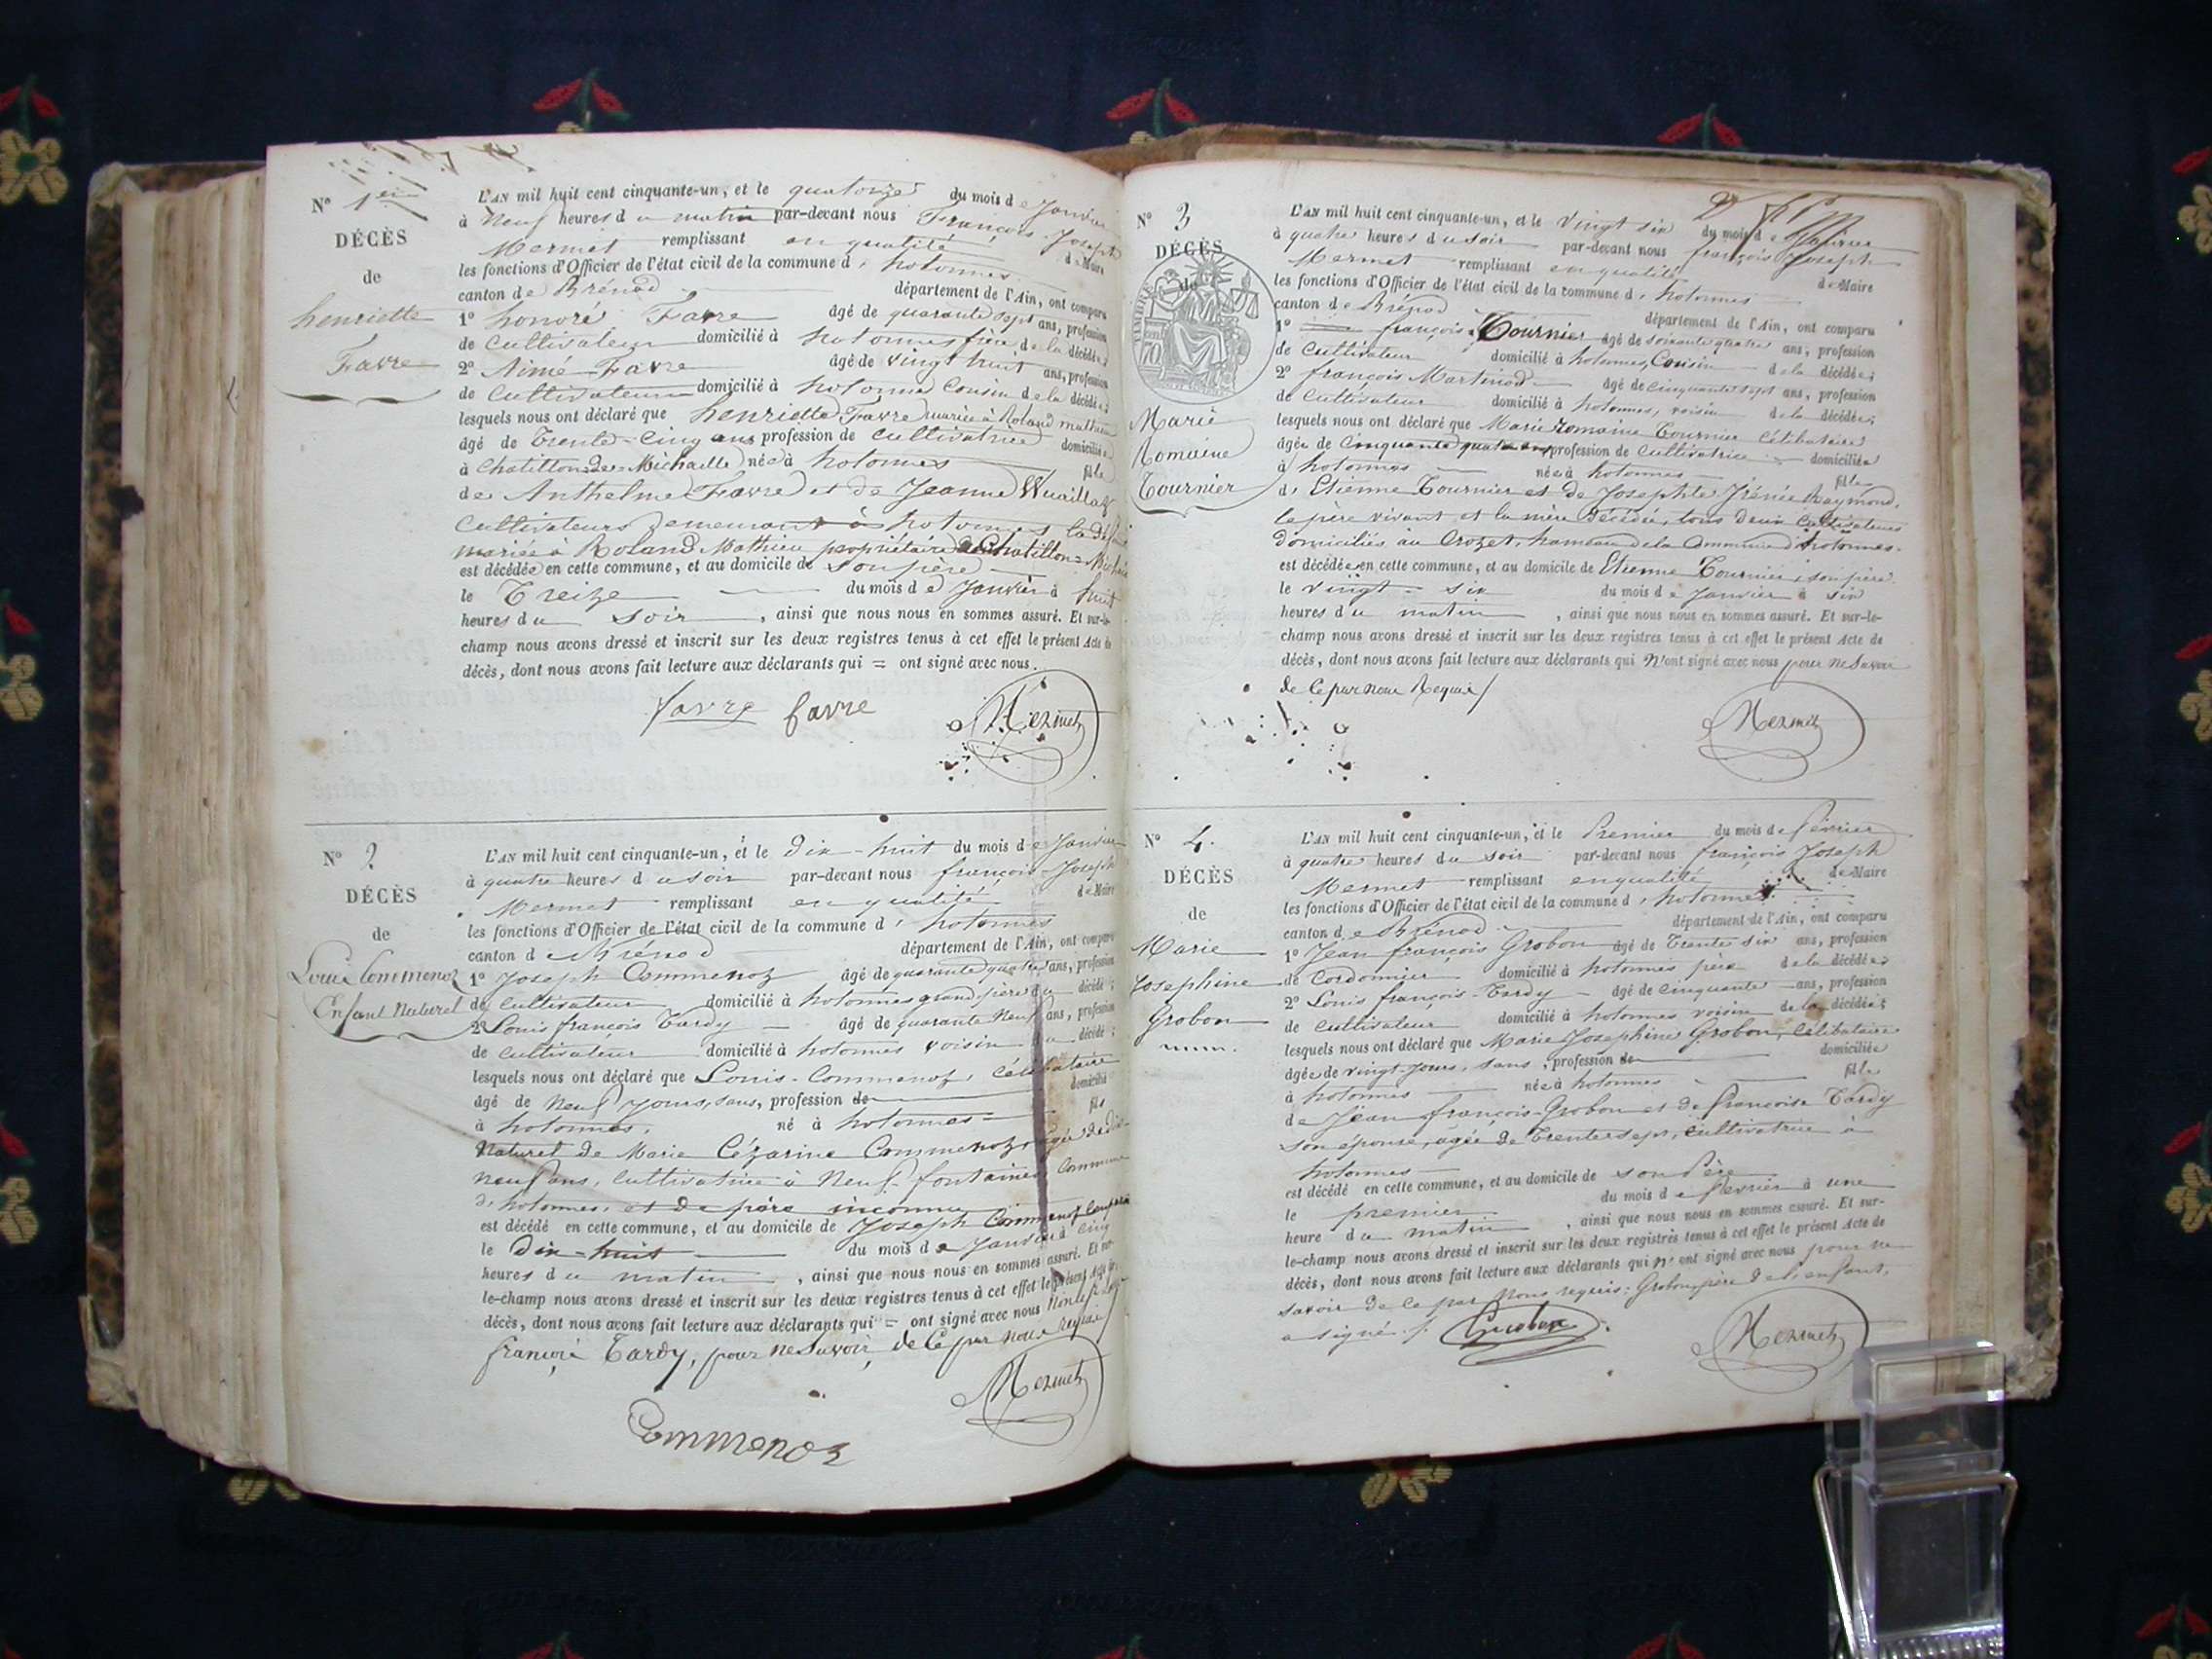 N° 1er
DÉCÈS
de
henriette
Favre
L'AN mil huit cent cinquante-un, et le quatorze du mois de Janvier
à Neuf heures du matin par-devant nous François Joseph
Mermet remplissant en qualité de Maire
les fonctions d'Officier de l'état civil de la commune d' hotonnes
canton de Brénod département de l'Ain, ont comparu
1° honoré Favre âgé de quarante sept ans, profession
de Cultivateur domicilié à hotonnes frère de la décédée;
2° Aimé Favre âgé de vingt huit ans, profession
de Cultivateur domicilié à hotonnes Cousin de la décédée;
lesquels nous ont déclaré que henriette Favre mariée à Roland mathieu
âgé de Trente-Cinq ans profession de cultivatrice domiciliée
à Chatillon de Michaille née à hotonnes fille
de Anthelme Favre et de Jeanne
Cultivateurs demeurant à hotonnes la
mariée à Roland Mathieu propriétaire à Chatillon
est décédée en cette commune, et au domicile de son père
le Treize du mois de Janvier à huit
heures du soir, ainsi que nous nous en sommes assuré. Et sur-le-
champ nous avons dressé et inscrit sur les deux registres tenus à cet effet le présent Acte de
décès, dont nous avons fait lecture aux déclarants qui = ont signé avec nous.
favre favre Mermet
N° 2
DÉCÈS
de
Louis Commenoz
Enfant Naturel
L'AN mil huit cent cinquante-un, et le dix-huit du mois de Janvier
à quatre heures du soir par-devant nous françois Joseph
Mermet remplissant en qualité de Maire
les fonctions d'Officier de l'état civil de la commune d' hotonnes
canton de Brénod département de l'Ain, ont comparu
1° Joseph Commenoz âgé de quarante quatre ans, profession
de cultivateur domicilié à hotonnes grand père du décédé;
2° Louis françois Tardy âgé de quarante Neuf ans, profession
de cultivateur domicilié à hotonnes voisin du décédé;
lesquels nous ont déclaré que Louis Commenoz, Célibataire
âgé de Neuf jours, sans, profession de domicilié
à hotonnes, né à hotonnes fils
Naturel de Marie Cézarine Commenoz, agée de dix-
neuf ans, Cultivatrice à Neuf-fontaines Commune
d'hotonnes, et de père inconnu
est décédé en cette commune, et au domicile de Joseph Commenoz
le Dix-huit du mois de Janvier à cinq
heures du matin, ainsi que nous nous en sommes assuré. Et sur-
le-champ nous avons dressé et inscrit sur les deux registres tenus à cet effet le présent Acte de
décès, dont nous avons fait lecture aux déclarants qui = ont signé avec nous Non
françois Tardy, pour ne savoir de Ce par nous Requis
Mermet
Commenoz
N° 3
DÉCÈS
de
TIMBRE
70
Marie
Romaine
Tournier
L'AN mil huit cent cinquante-un, et le vingt six du mois de Janvier
à quatre heures du soir par-devant nous françois Joseph
Mermet remplissant en qualité de Maire
les fonctions d'Officier de l'état civil de la commune d' hotonnes
canton de Brénod département de l'Ain, ont comparu
1° françois Tournier âgé de soixante quatre ans, profession
de Cultivateur domicilié à hotonnes, Cousin de la décédée;
2° françois Martinod âgé de cinquante sept ans, profession
de Cultivateur domicilié à hotonnes, voisin de la décédée;
lesquels nous ont déclaré que Marie Romaine Tournier Célibataire
âgée de Cinquante quatre ans profession de Cultivatrice domiciliée
à hotonnes née à hotonnes fille
d' Etienne Tournier et de Josephte Irénée Raymond,
le père vivant et la mère Décédée, tous deux cultivateurs
domiciliés au Crozet, hameau de la Commune d'hotonnes.
est décédée en cette commune, et au domicile de Etienne Tournier, son père
le vingt-six du mois de Janvier à six
heures du matin, ainsi que nous nous en sommes assuré. Et sur-le-
champ nous avons dressé et inscrit sur les deux registres tenus à cet effet le présent Acte de
décès, dont nous avons fait lecture aux déclarants qui N'ont signé avec nous pour ne Savoir
de Ce par nous Requis
Mermet
N° 4.
DÉCÈS
de
Marie
Josephine
Grobon
L'AN mil huit cent cinquante-un, et le Premier du mois de février
à quatre heures du soir par-devant nous françois Joseph
Mermet remplissant en qualité de Maire
les fonctions d'Officier de l'état civil de la commune d' hotonnes
canton de Brénod département de l'Ain, ont comparu
1° Jean françois Grobon âgé de Trente six ans, profession
de Cordonnier domicilié à hotonnes père de la décédée;
2° Louis françois Tardy âgé de Cinquante ans, profession
de cultivateur domicilié à hotonnes voisin de la décédée;
lesquels nous ont déclaré que Marie Josephine Grobon, Célibataire
âgée de vingt jours, sans, profession de domiciliée
à hotonnes née à hotonnes fille
de Jean françois Grobon et de françoise Tardy
son épouse, agée de Trente sept, Cultivatrice à
hotonnes
est décédé en cette commune, et au domicile de son Père
le premier du mois de février à une
heure du matin, ainsi que nous nous en sommes assuré. Et sur-
le-champ nous avons dressé et inscrit sur les deux registres tenus à cet effet le présent Acte de
décès, dont nous avons fait lecture aux déclarants qui n' ont signé avec nous pour ne
savoir de Ce par Nous requis: Grobon père de l'enfant,
a signé. Grobon Mermet